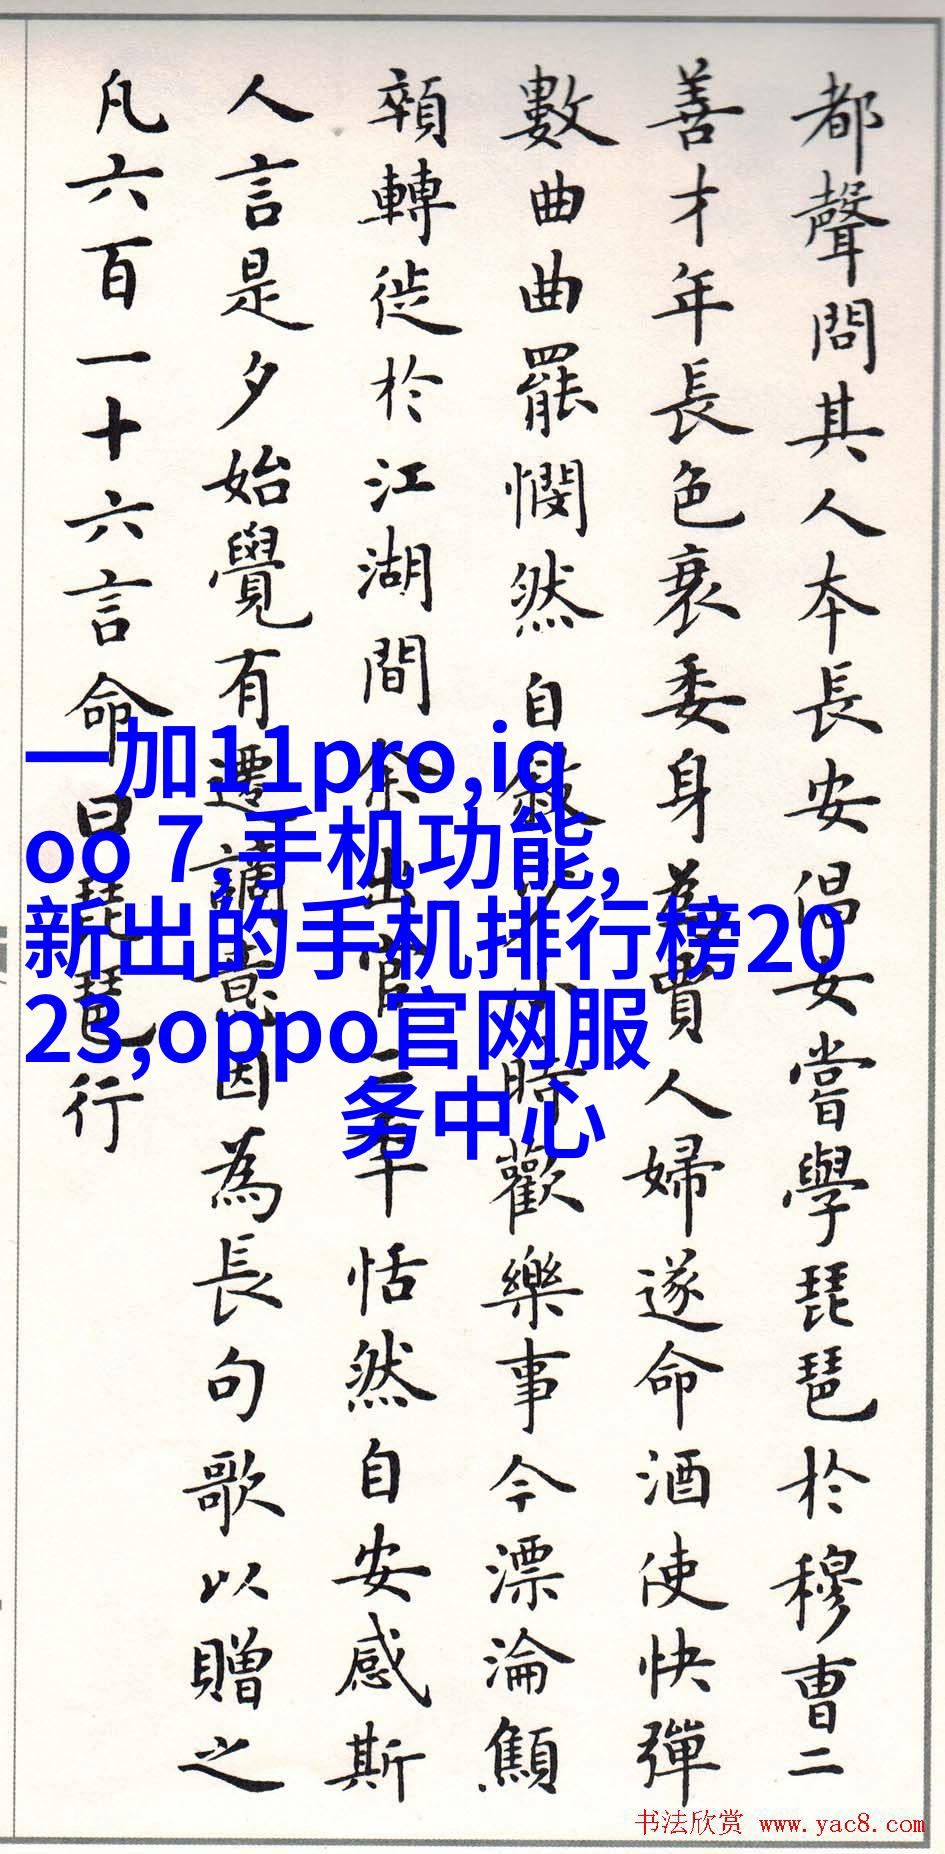 都聲問其人本長安倡女嘗學琵琶於穆曹二
善才年長色衰委身為賈人婦遂命酒使快彈
數曲曲罷憫然自敘少小時歡樂事今漂淪顦
顇轉徙於江湖間余出官二年恬然自安感斯
人言是夕始覺有遷謫意因為長句歌以贈之
凡六百一十六言命曰琵琶行
一加11pro,iq
oo 7,手机功能,
新出的手机排行榜20
23,oppo官网服
务中心
书法欣赏 www.yac8.com